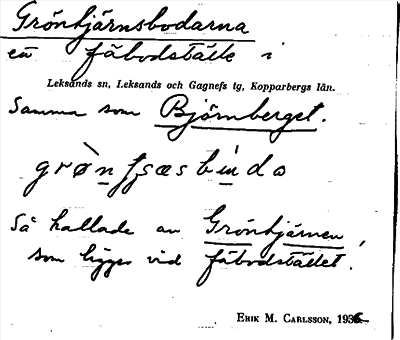 Gröntjärnsbodarna
en fäbodställe i
Leksands sn, Leksands och Gagnefs tg, Kopparbergs län.
Samma som Björnberget.
Så kallade av Gröntjärnen,
som ligger vid fäbodstället.
ERIK M. CARLSSON, 1936